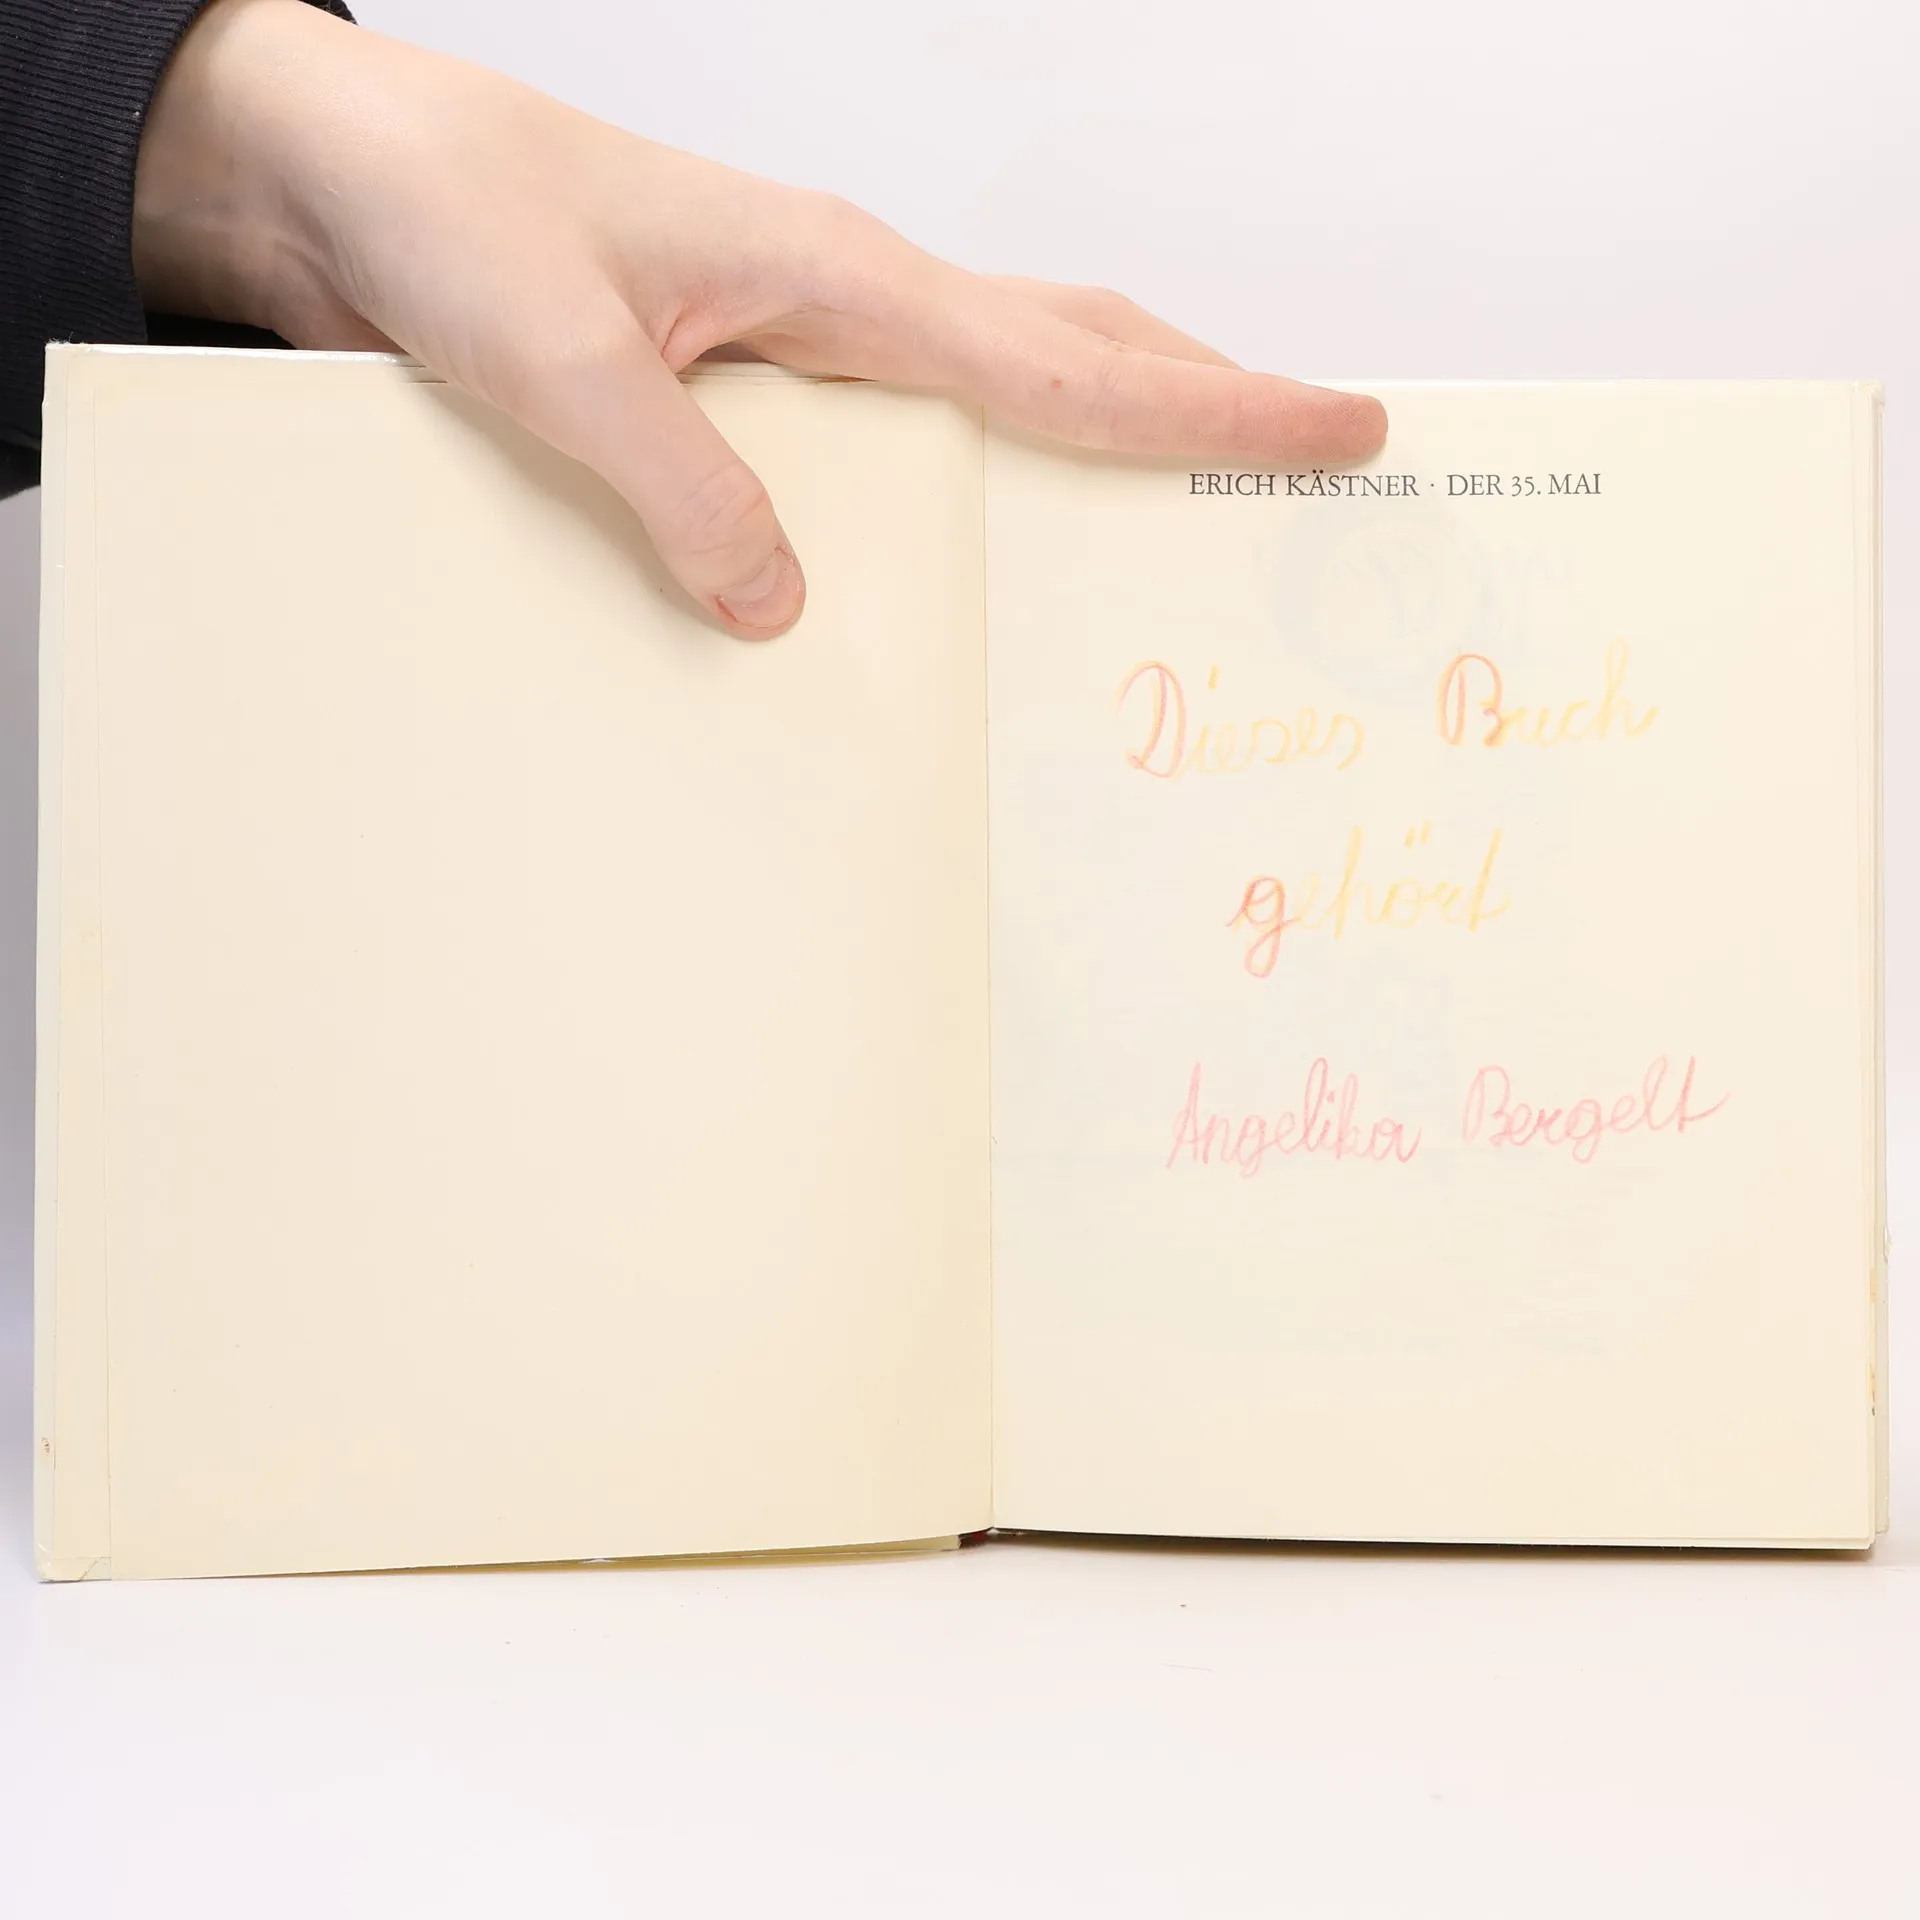 ERICH KÄSTNER · DER 35. MAI
Dieses Buch
gehört
Angelika Bergelt